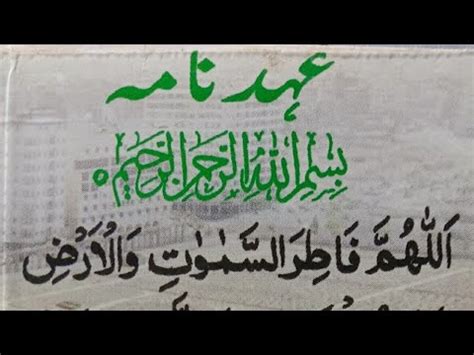 عہد نامہ
بِسْمِ اللهِ الرَّحْمٰنِ الرَّحِيْمِ ٥
اَللّٰهُمَّ فَاطِرَ السَّمٰوٰتِ وَالْاَرْضِ